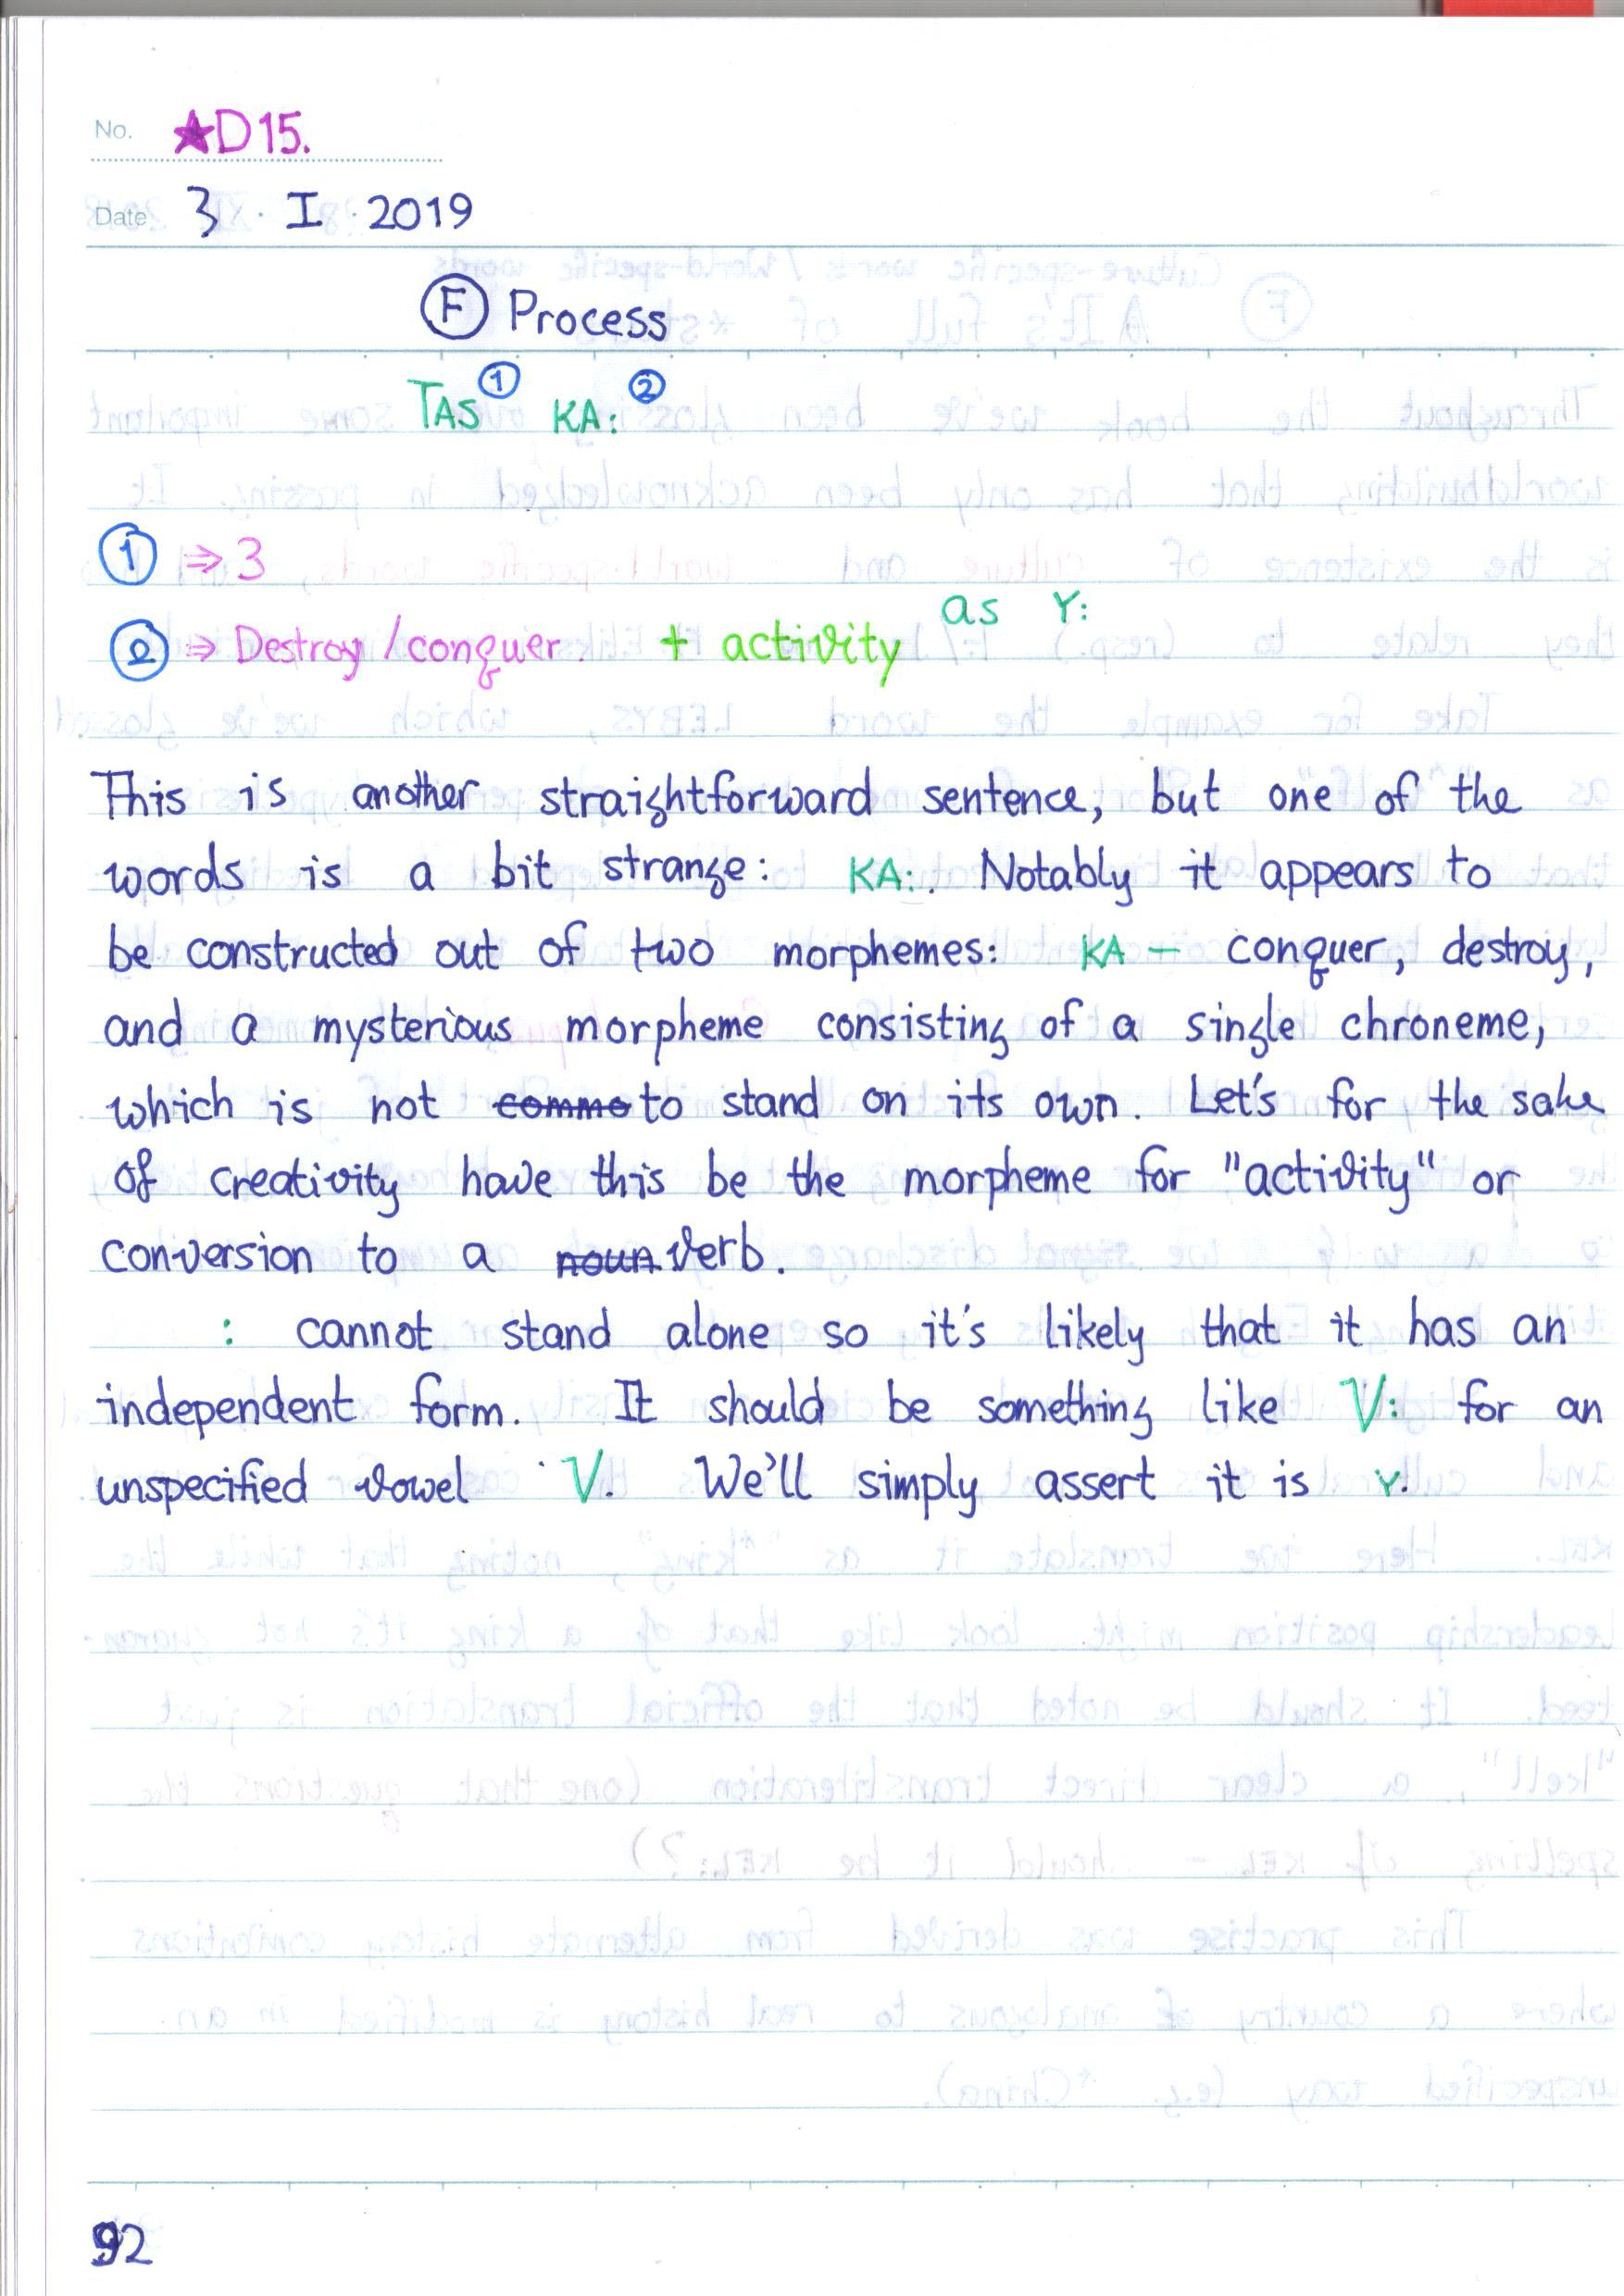 No. ★D15.
Date 3 · I · 2019
Ⓕ Process
TAS① KA:②
① ⇒ 3
② ⇒ Destroy/conquer. + activity as Y:
This is another straightforward sentence, but one of the
words is a bit strange: KA:. Notably it appears to
be constructed out of two morphemes: KA – conquer, destroy,
and a mysterious morpheme consisting of a single chroneme,
which is not commo to stand on its own. Let's for the sake
of creativity have this be the morpheme for "activity" or
conversion to a noun verb.
: cannot stand alone so it's likely that it has an
independent form. It should be something like V: for an
unspecified vowel V. We'll simply assert it is Y.
92